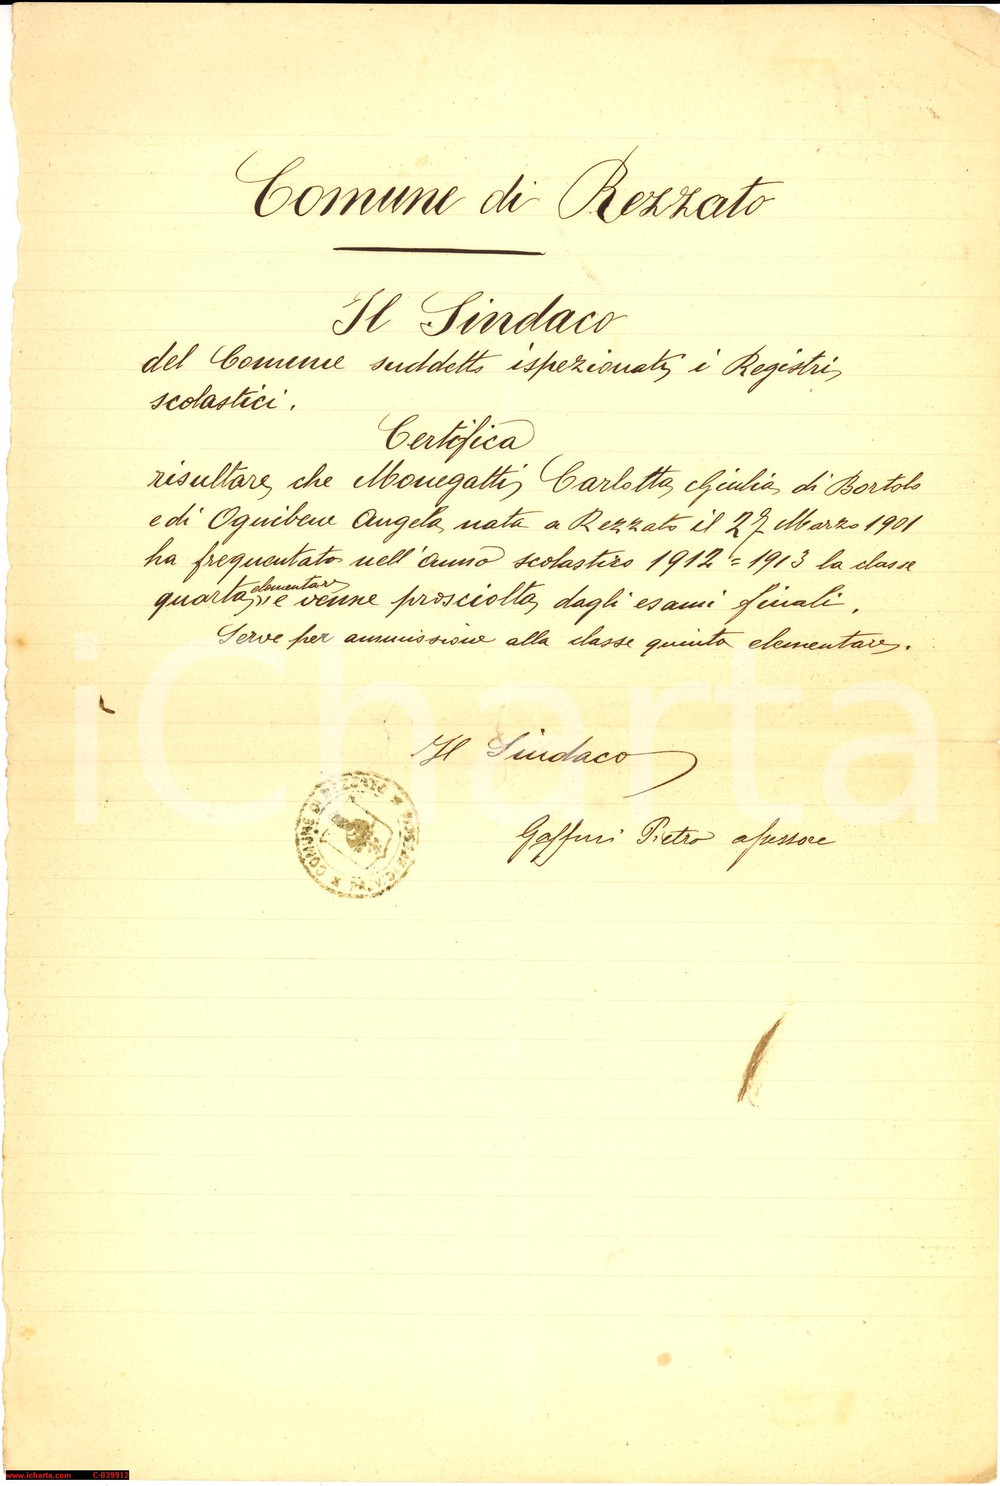 Comune di Rezzato
Il Sindaco
del Comune suddetto ispezionati i Registri
scolastici.
Certifica
risultare che Monegatti Carlotta Giulia di Bortolo
e di Ognibene Angela nata a Rezzato il 27 Marzo 1901
ha frequentato nell'anno scolastico 1912=1913 la classe
quarta elementare e venne prosciolta dagli esami finali.
Serve per ammissione alla classe quinta elementare.
Il Sindaco
Gaffuri Pietro assessore
COMUNE DI REZZATO
iCharta
www.icharta.com C-039912